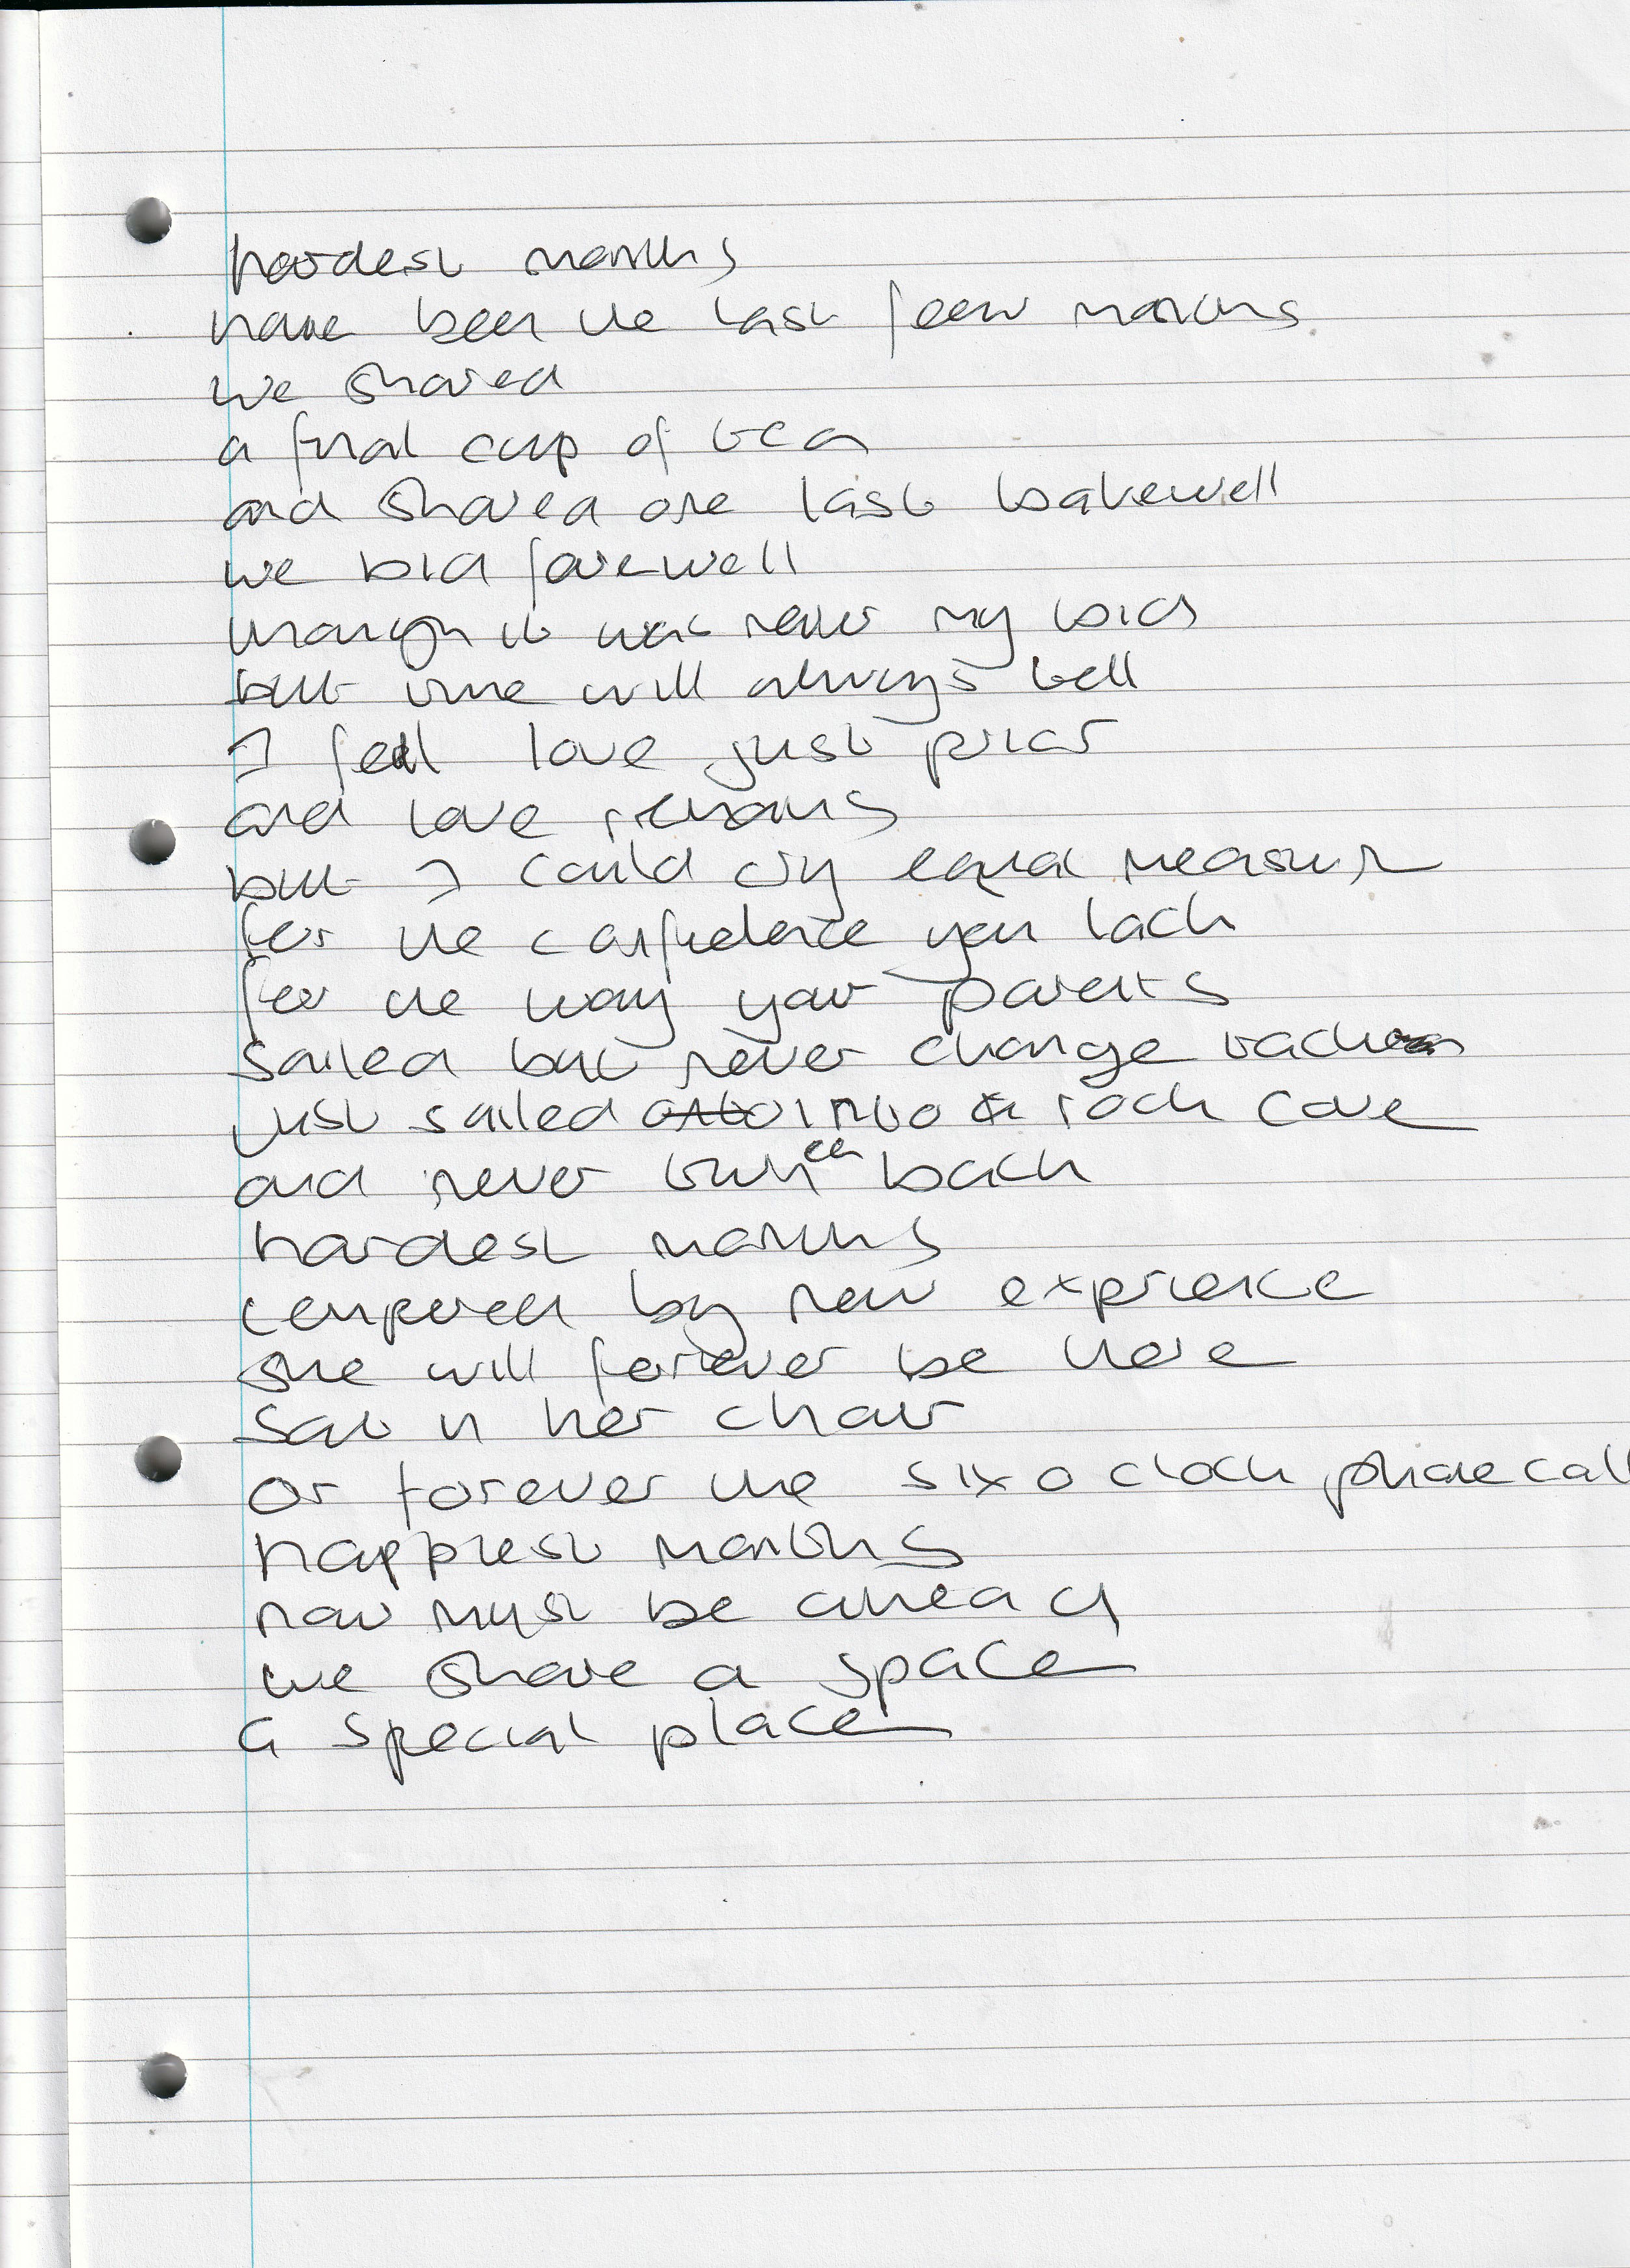 hardest months
have been the last few months
we shared
a final cup of tea
and shared one last bakewell
we bid farewell
though it was never my bid
but time will always tell
I feel love just prior
and love remains
but I could cry equal measure
for the confidence you lack
for the way your parents
sailed but never change tack
just sailed into a rock cove
and never turn back
hardest months
tempered by new exprience
she will forever be there
sat in her chair
or forever the six o clock phonecall
happiest months
now must be ahead
we share a space
a special place